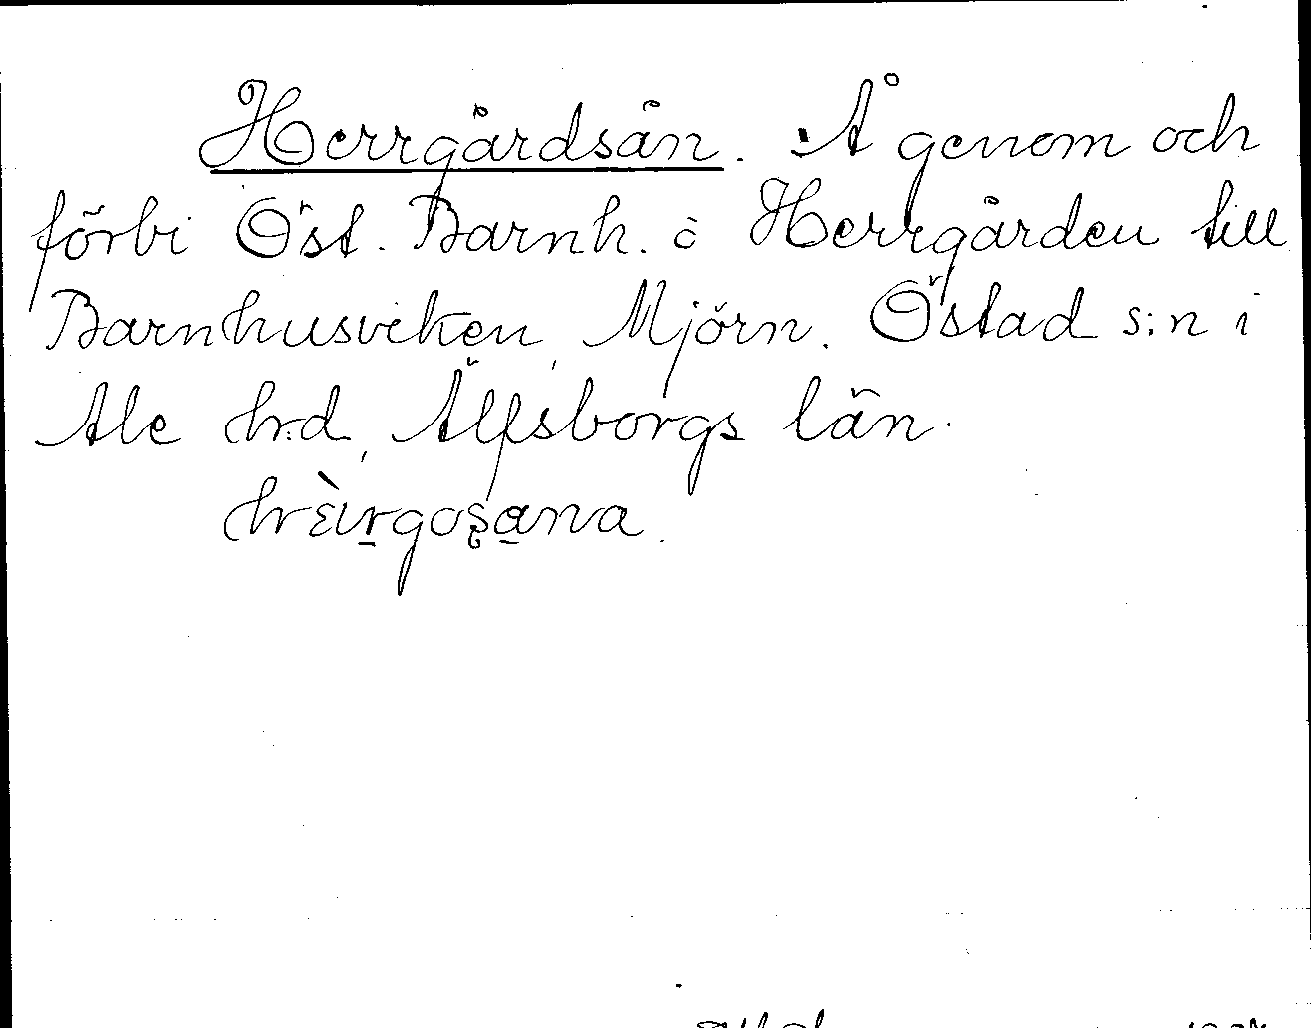 Herrgårdsån. Å genom och
förbi Öst. Barnh. å Herrgården till
Barnhusviken, Mjörn. Östad s:n i
Ale h:d, Älfsborgs län.